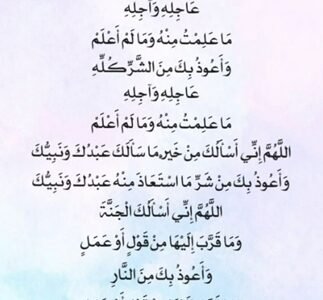 عَاجِلِهِ وَآجِلِهِ
مَا عَلِمْتُ مِنْهُ وَمَا لَمْ أَعْلَمْ
وَأَعُوذُ بِكَ مِنَ الشَّرِّ كُلِّهِ
عَاجِلِهِ وَآجِلِهِ
مَا عَلِمْتُ مِنْهُ وَمَا لَمْ أَعْلَمْ
اللَّهُمَّ إِنِّي أَسْأَلُكَ مِنْ خَيْرِ مَا سَأَلَكَ عَبْدُكَ وَنَبِيُّكَ
وَأَعُوذُ بِكَ مِنْ شَرِّ مَا اسْتَعَاذَ مِنْهُ عَبْدُكَ وَنَبِيُّكَ
اللَّهُمَّ إِنِّي أَسْأَلُكَ الْجَنَّةَ
وَمَا قَرَّبَ إِلَيْهَا مِنْ قَوْلٍ أَوْ عَمَلٍ
وَأَعُوذُ بِكَ مِنَ النَّارِ